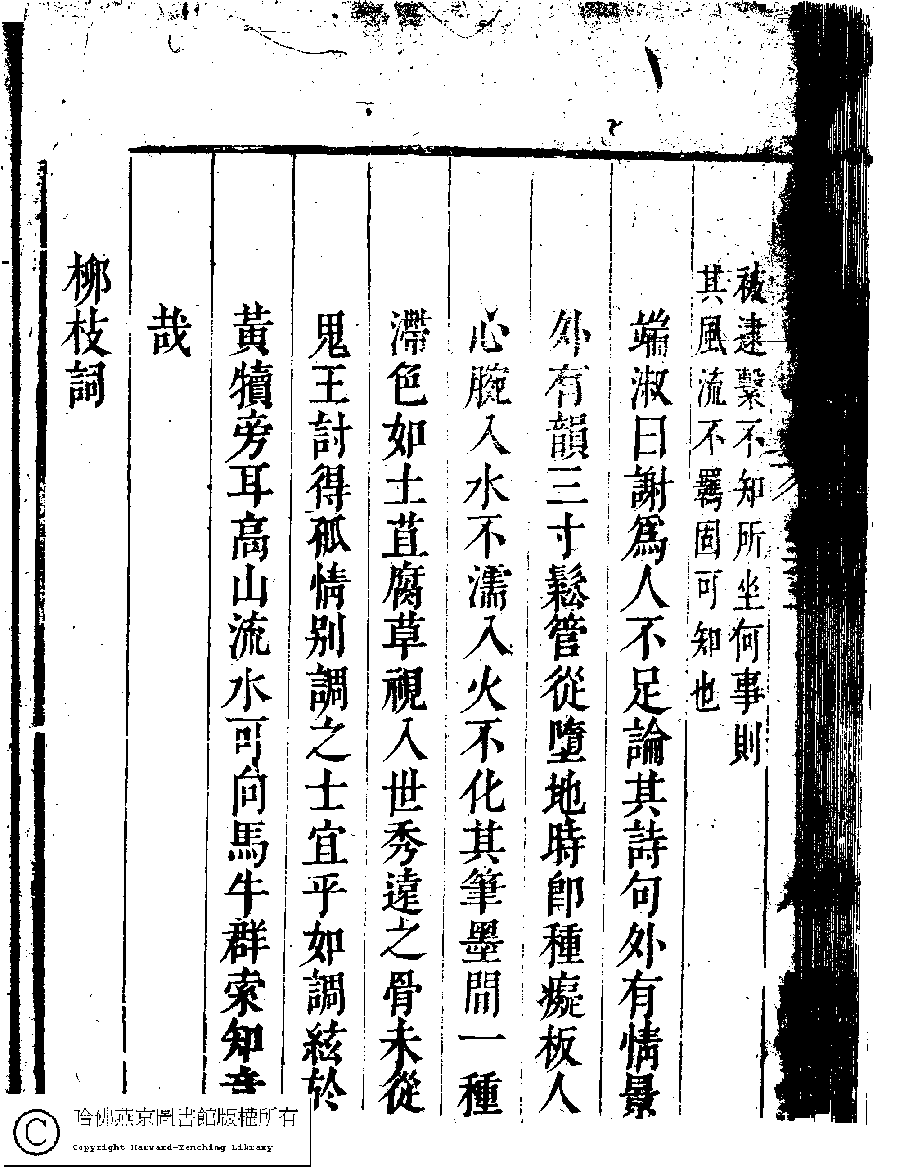 被逮繫不知所坐何事則
其風流不羈固可知也
端淑曰謝爲人不足論其詩句外有情景
外有韻三寸鬆管從墮地時卽種癡板人
心腕入水不濡入火不化其筆墨間一種
滯色如土苴腐草視入世秀遠之骨未從
鬼王討得孤情别調之士宜乎如調絃於
黃犢旁耳高山流水可向馬牛群索知音
哉
柳枝詞
哈佛燕京圖書館版權所有
Copyright Harvard-Yenching Library